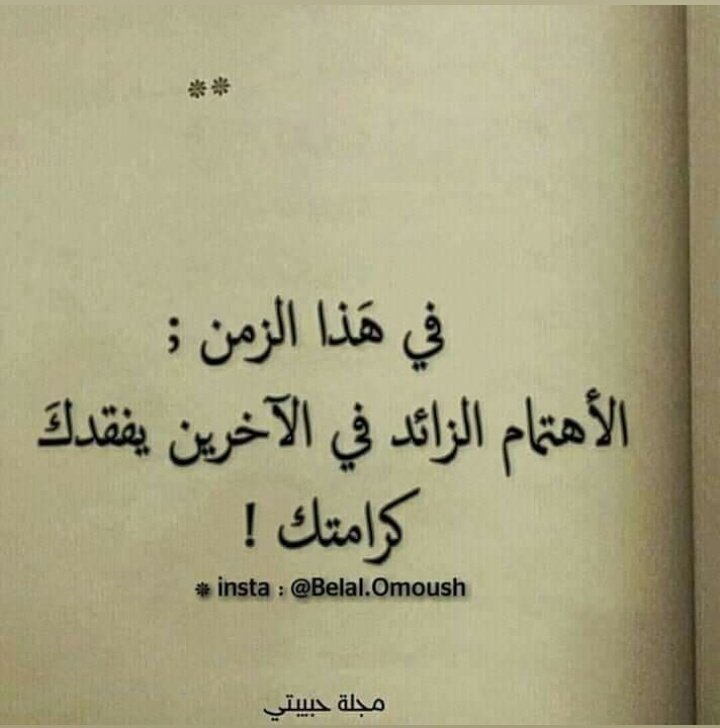 **
في هَذا الزمن ;
الأهتمام الزائد في الآخرين يفقدكَ
كرامتك !
* insta : @Belal.Omoush
مجلة حبيبتي